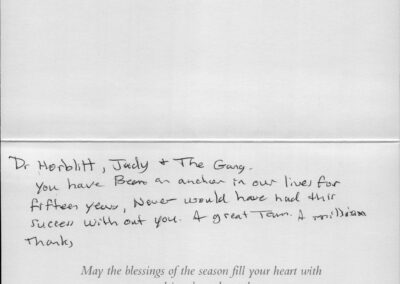 Dr Horblitt, Judy + The Gang.
You have Been an anchor in our lives for
fifteen years, Never would have had this
success with out you. A great Team. A million
Thanks
May the blessings of the season fill your heart with